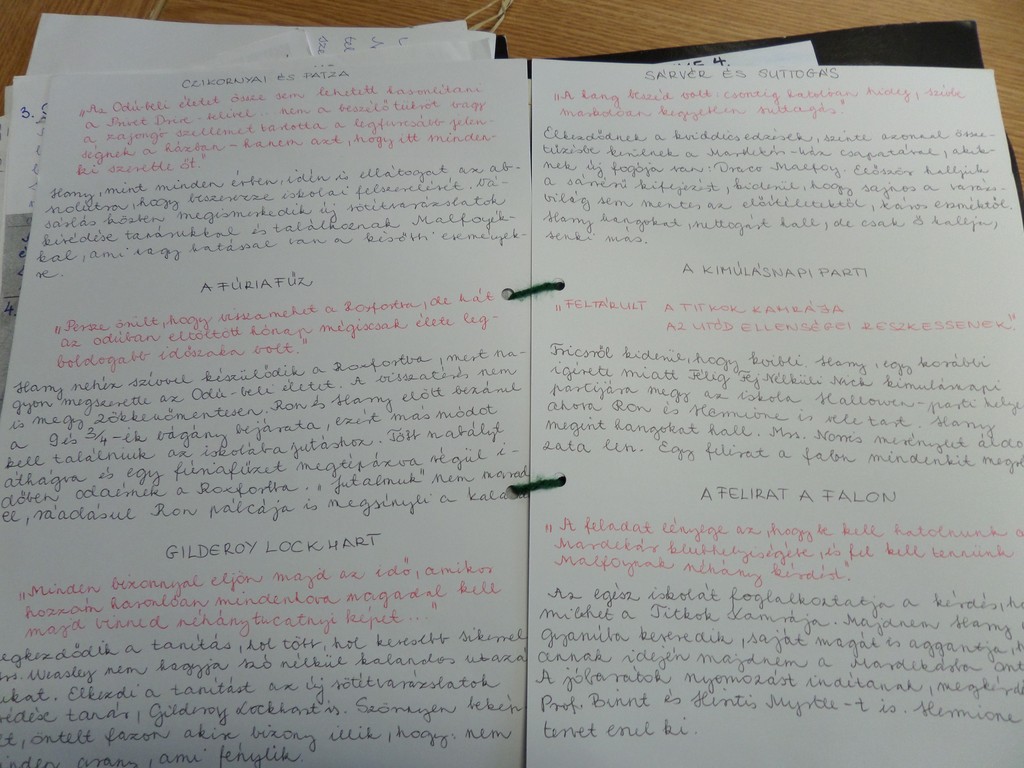 CZIKORNYAI ÉS PATZA
„Az Odú-beli életet össze sem lehetett hasonlítani
a Privet Drive -belivel... nem a beszélő tükröt vagy
a zajongó szellemet tartotta a legfurcsább jelen-
ségnek a házban – hanem azt, hogy itt minden-
ki szerette őt."
Harry, mint minden évben, idén is ellátogat az ab-
szol útra, hogy beszerezze iskolai felszerelését. Vá-
sárlás közben megismerkedik új sötét varázslatok
kivédése tanárukkal és találkoznak Malfoyék-
kal, ami nagy hatással van a későbbi események-
re.
A FÚRIAFŰZ
„Persze örült, hogy visszamehet a Roxfortba, de hát
az odúban eltöltött hónap mégiscsak élete leg-
boldogabb időszaka volt."
Harry nehéz szívvel készülődik a Roxfortba, mert na-
gyon megszerette az Odú-beli életet. A visszatérés nem
is megy zökkenőmentesen. Ron és Harry előtt bezárul
a 9 és 3/4-ik vágány bejárata, ezért más módot
kell találniuk az iskolába jutáshoz. Több szabályt
áthágva és egy fúriafűzet megtépázva végül i-
dőben odaérnek a Roxfortba. „Jutalmuk" nem marad
el, ráadásul Ron pálcája is megsínyli a kalan
GILDEROY LOCKHART
„Minden bizonnyal eljön majd az idő, amikor
hozzám hasonlóan mindenhova magaddal kell
majd vinned néhány tucatnyi képet..."
egkezdődik a tanítás, hol több, hol kevesebb sikerrel
rs. Weasley nem hagyja szó nélkül kalandos utazá
ukat. Elkezdi a tanítást az új sötét varázslatok
védése tanár, Gilderoy Lockhart is. Szörnyen beképz
t, öntelt fazon akire bizony illik, hogy: nem
inden arany, ami fénylik.
SÁRVÉR ÉS SUTTOGÁS
„A hang beszéd volt: csontig hatolóan hideg, szívbe
markolóan kegyetlen suttogás."
Elkezdődnek a kviddics edzések, szinte azonnal össze-
tűzésbe kerülnek a Mardekár-ház csapatával, akik-
nek új fogója van: Draco Malfoy. Először halljuk
a sárvérű kifejezést, kiderül, hogy sajnos a varázs-
világ sem mentes az előítéletektől, káros eszméktől.
Harry hangokat, suttogást hall, de csak ő hallja,
senki más.
A KIMÚLÁSNAPI PARTI
„FELTÁRULT A TITKOK KAMRÁJA
AZ UTÓD ELLENSÉGEI RESZKESSENEK."
Fricsről kiderül, hogy kvibli. Harry, egy korábbi
ígérete miatt Félig Fej Nélküli Nick kimúlásnapi
partijára megy az iskola Hallowen-parti helye
ahova Ron és Hermione is vele tart. Harry
megint hangokat hall. Mrs. Norris merénylet áldo
zata lesz. Egy felirat a falon mindenkit megr
A FELIRAT A FALON
„A feladat lényege az, hogy be kell hatolnunk a
Mardekár klubhelyiségébe, és fel kell tennünk
Malfoynak néhány kérdést".
Az egész iskolát foglalkoztatja a kérdés, ho
mi lehet a Titkok Kamrája. Majdnem Harry
gyanúba keveredik, saját magát és aggasztja, h
annak idején majdnem a Mardekárba
A jóbarátok nyomozást indítanak, megkérd
Prof. Binnt és Hisztis Myrtle-t is. Hermione
tervet eszel ki.
3.
4.